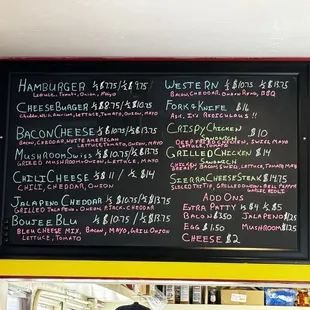 HAMBURGER ⅓ $7.75/½ $9.75
LETTUCE, TOMATO, ONION, MAYO
CHEESEBURGER ⅓ $8.75/½ $10.75
LETTUCE, TOMATO, ONION, MAYO
BACON CHEESE ⅓ $10.75/½ $13.75
BACON, CHEDDAR, WHITE AMERICAN
LETTUCE, TOMATO, ONION, MAYO
MUSHROOM SWISS ⅓ $10.75/½ $13.75
GRILLED MUSHROOM, ONION, LETTUCE, MAYO
CHILI CHEESE ⅓ $11 / ½ $14
CHILI, CHEDDAR, ONION
JALAPENO CHEDDAR ⅓ $10.75/½ $13.75
GRILLED JALAPENO, ONION, CHEDDAR
BOUJEE BLU ⅓ $10.75/½ $13.75
BLEU CHEESE MIX, BACON, MAYO, GRILL ONION
LETTUCE, TOMATO
WESTERN ⅓ $10.75 ½ $13.75
BACON, CHEDDAR, ONION RING, BBQ
FORK & KNIFE $16
ASK, IT'S RIDICULOUS !!
CRISPY CHICKEN $10
SANDWICH
DEEP FRIED CHICKEN, SWISS, MAYO
LETTUCE, TOMATO
GRILLED CHICKEN $14
SANDWICH
CHEDDAR, BACON, SWISS, LETTUCE, TOMATO, MAYO
SIERRA CHEESE STEAK $14.75
SLICED TRI TIP, GRILLED ONION, BELL PEPPER
ADD ONS
EXTRA PATTY ⅓ $4 ½ $5
BACON $3.50 JALAPENO $1.25
EGG $1.50 MUSHROOM $1.25
CHEESE $2